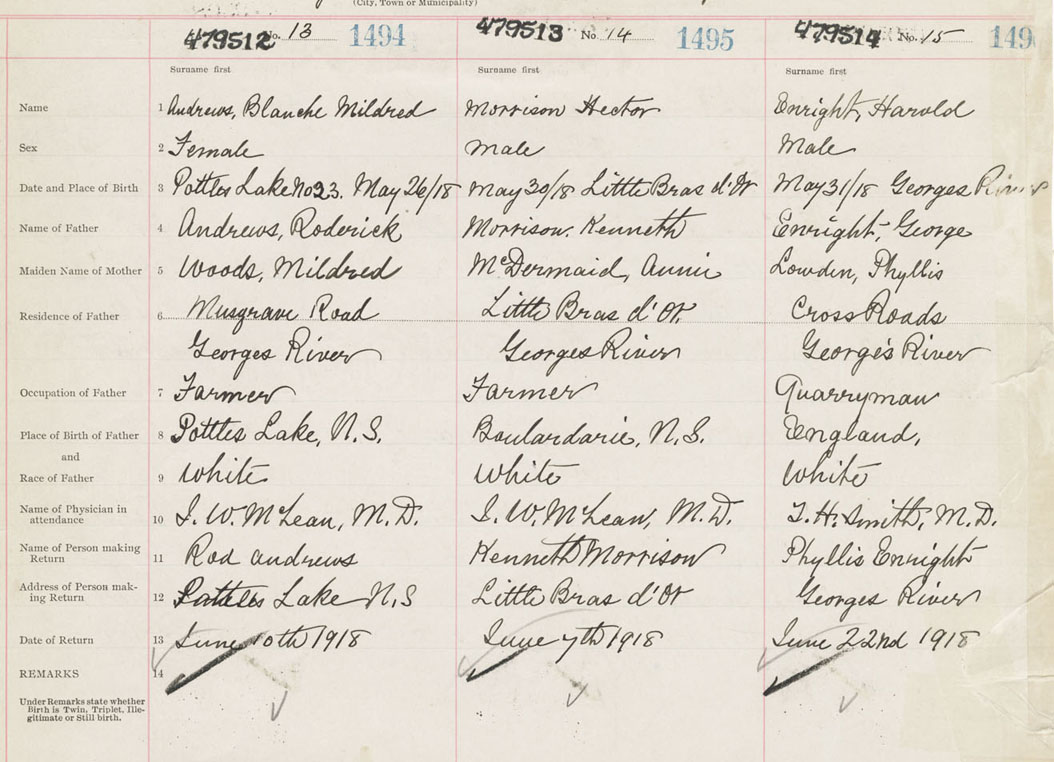 (City, Town or Municipality)
479512 No. 13 1494 479513 No. 14 1495 479514 No. 15 149
Surname first Surname first Surname first
Name 1 Andrews, Blanche Mildred Morrison Hector Enright, Harold
Sex 2 Female Male Male
Date and Place of Birth 3 Pottles Lake No 23. May 26/18 May 30/18 Little Bras d'Or May 31/18 Georges River
Name of Father 4 Andrews, Roderick Morrison. Kenneth Enright, George
Maiden Name of Mother 5 Woods, Mildred McDermaid, Annie Lowden, Phyllis
Residence of Father 6 Musgrave Road Little Bras d'Or. Cross Roads
Georges River Georges River George's River
Occupation of Father 7 Farmer Farmer Quarryman
Place of Birth of Father 8 Pottles Lake, N.S. Boulardarie, N.S. England,
and
Race of Father 9 White White White
Name of Physician in
attendance 10 I. W. McLean, M.D. I. W. McLean, M.D. T. H. Smith, M.D.
Name of Person making
Return 11 Rod andrews Kenneth Morrison Phyllis Enright
Address of Person mak-
ing Return 12 Lake N.S Little Bras d'Or Georges River
Date of Return 13 June 10th 1918 June 7th 1918 June 22nd 1918
REMARKS 14
Under Remarks state whether
Birth is Twin, Triplet, Ille-
gitimate or Still birth.